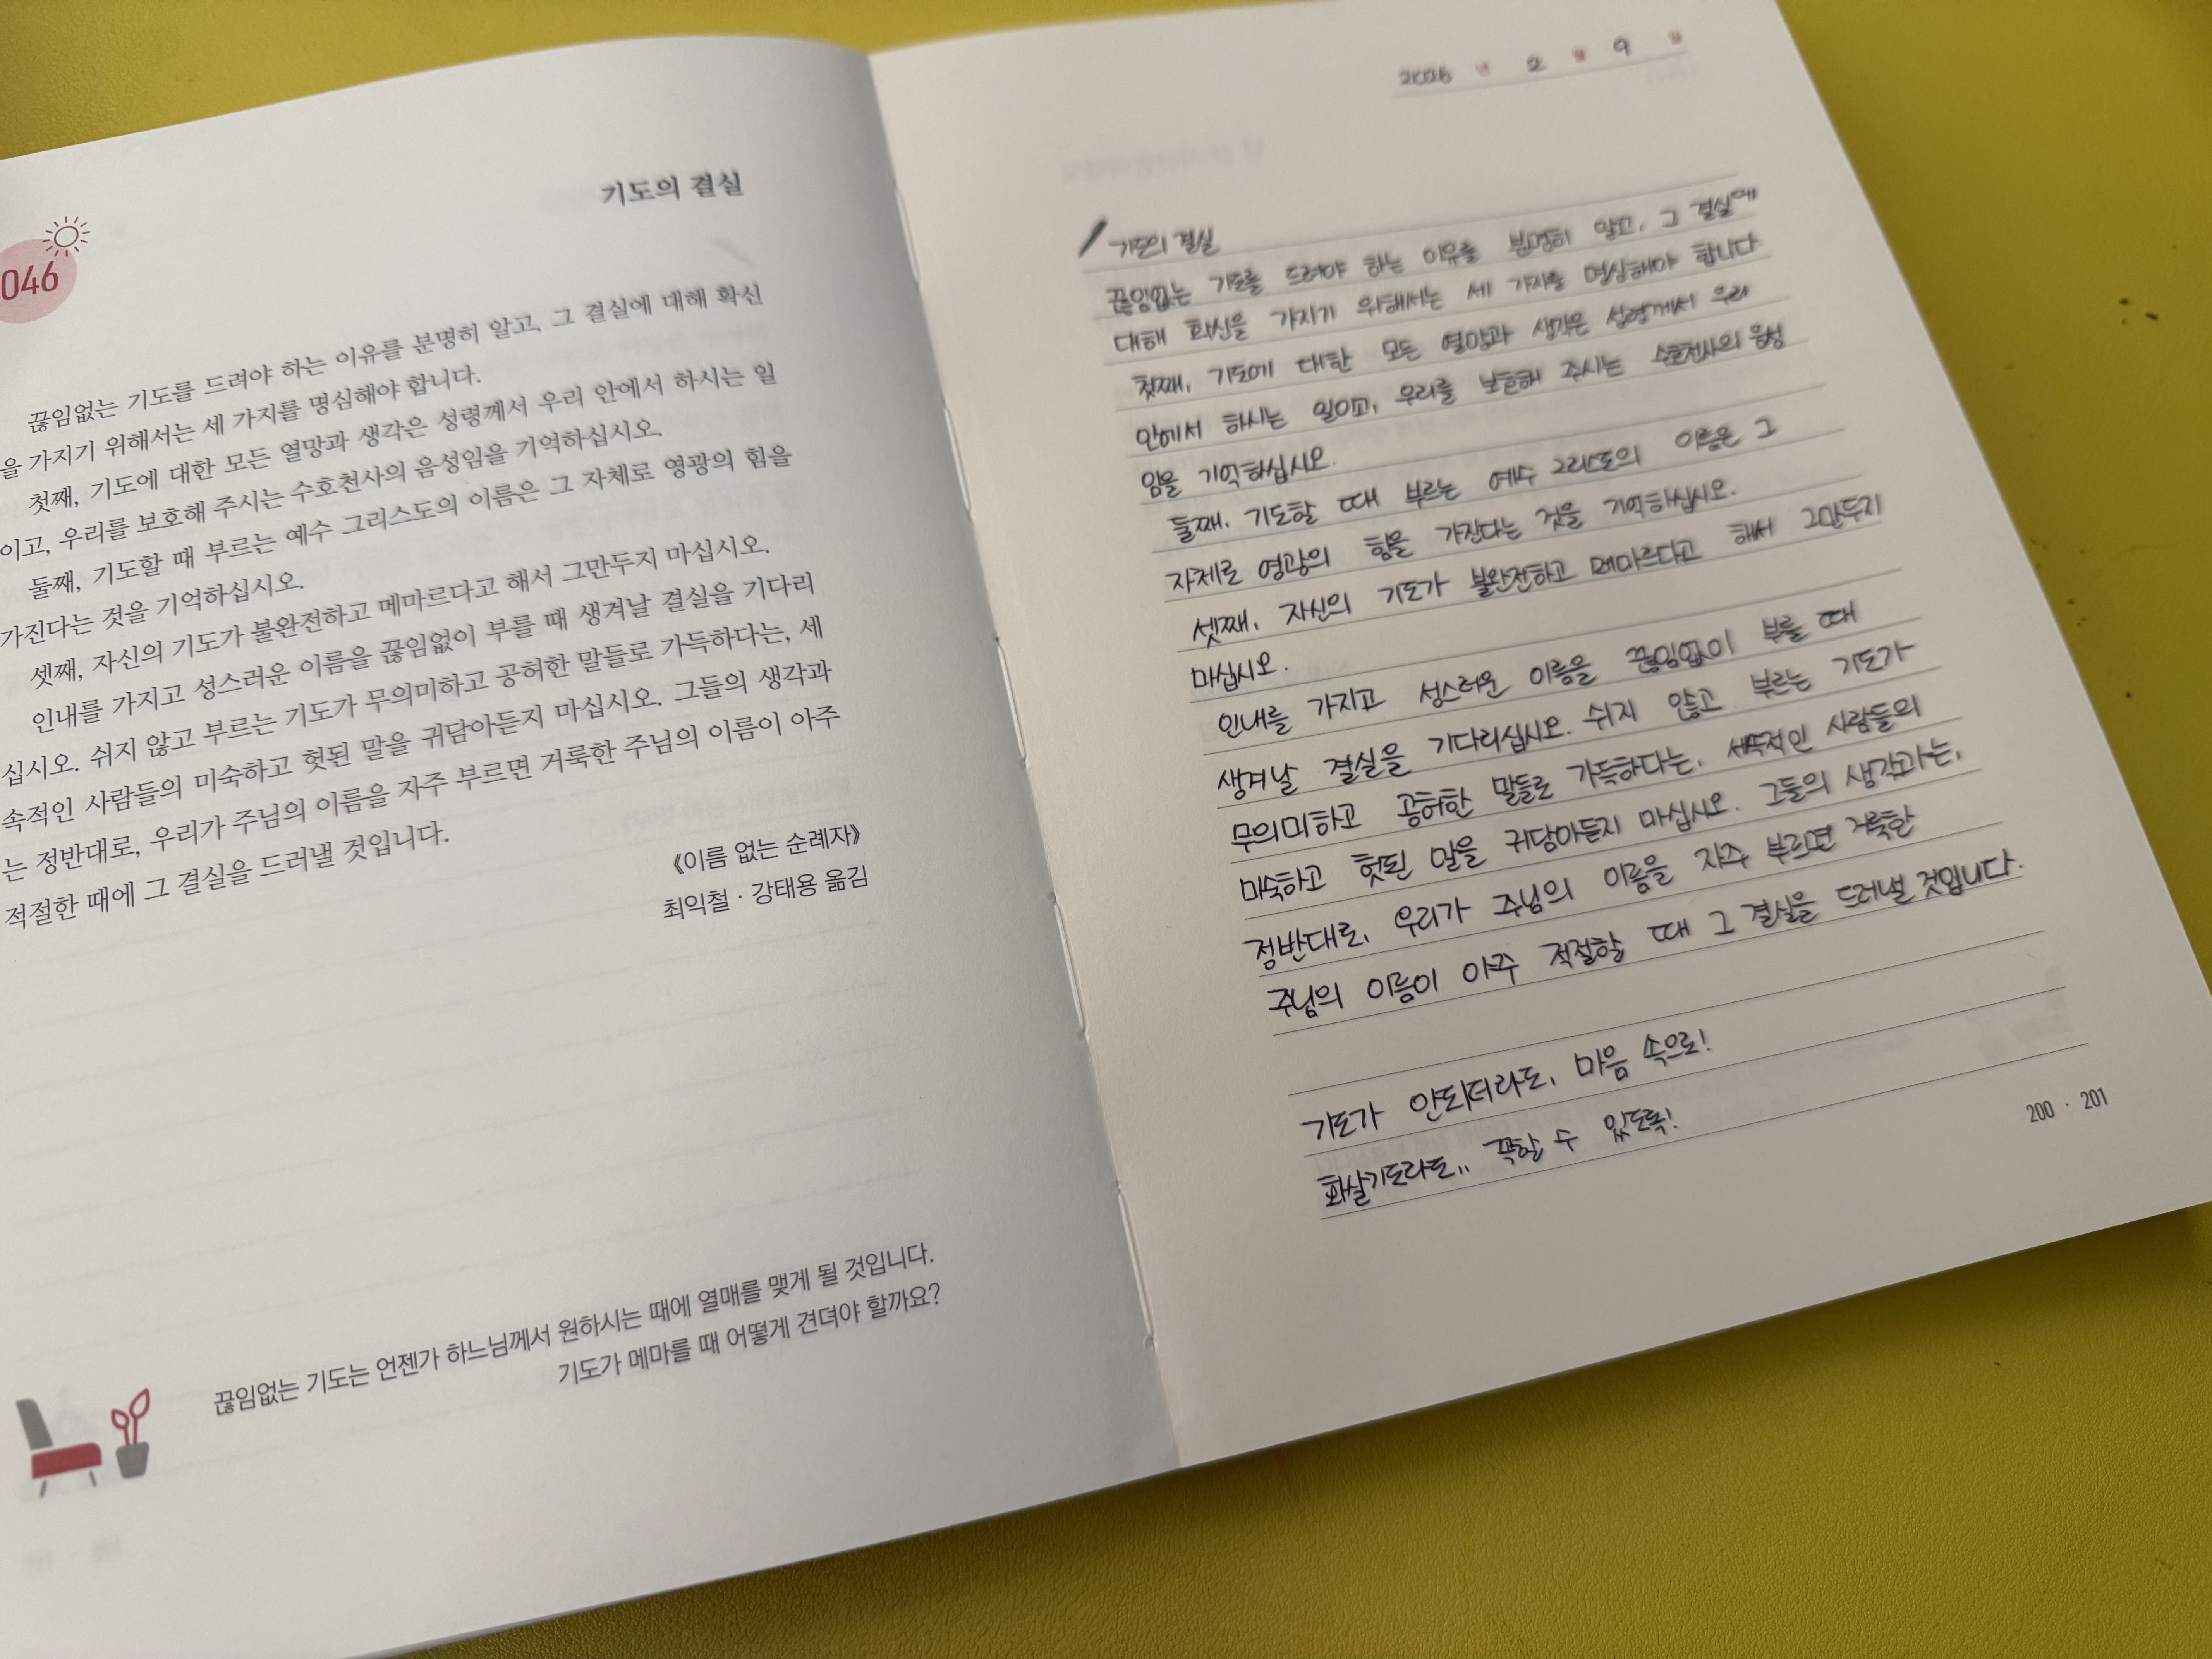 046
기도의 결실
끊임없는 기도를 드려야 하는 이유를 분명히 알고, 그 결실에 대해 확신
을 가지기 위해서는 세 가지를 명심해야 합니다.
첫째, 기도에 대한 모든 열망과 생각은 성령께서 우리 안에서 하시는 일
이고, 우리를 보호해 주시는 수호천사의 음성임을 기억하십시오.
둘째, 기도할 때 부르는 예수 그리스도의 이름은 그 자체로 영광의 힘을
가진다는 것을 기억하십시오.
셋째, 자신의 기도가 불완전하고 메마르다고 해서 그만두지 마십시오.
인내를 가지고 성스러운 이름을 끊임없이 부를 때 생겨날 결실을 기다리
십시오. 쉬지 않고 부르는 기도가 무의미하고 공허한 말들로 가득하다는, 세
속적인 사람들의 미숙하고 헛된 말을 귀담아듣지 마십시오. 그들의 생각과
는 정반대로, 우리가 주님의 이름을 자주 부르면 거룩한 주님의 이름이 아주
적절한 때에 그 결실을 드러낼 것입니다.
《이름 없는 순례자》
최익철 · 강태용 옮김
끊임없는 기도는 언젠가 하느님께서 원하시는 때에 열매를 맺게 될 것입니다.
기도가 메마를 때 어떻게 견뎌야 할까요?
2026 년 2 월 9 일
기도의 결실
끊임없는 기도를 드려야 하는 이유를 분명히 알고, 그 결실에
대해 확신을 가지기 위해서는 세 가지를 명심해야 합니다
첫째, 기도에 대한 모든 열망과 생각은 성령께서 우리
안에서 하시는 일이고, 우리를 보호해 주시는 수호천사의 음성
임을 기억하십시오.
둘째, 기도할 때 부르는 예수 그리스도의 이름은 그
자체로 영광의 힘을 가진다는 것을 기억하십시오.
셋째, 자신의 기도가 불완전하고 메마르다고 해서 그만두지
마십시오.
인내를 가지고 성스러운 이름을 끊임없이 부를 때
생겨날 결실을 기다리십시오. 쉬지 않고 부르는 기도가
무의미하고 공허한 말들로 가득하다는, 세속적인 사람들의
미숙하고 헛된 말을 귀담아듣지 마십시오. 그들의 생각과는,
정반대로, 우리가 주님의 이름을 자주 부르면 거룩한
주님의 이름이 아주 적절할 때 그 결실을 드러낼 것입니다.
기도가 안되더라도, 마음 속으로!
화살기도라도.. 꼭할 수 있도록!
200 · 201